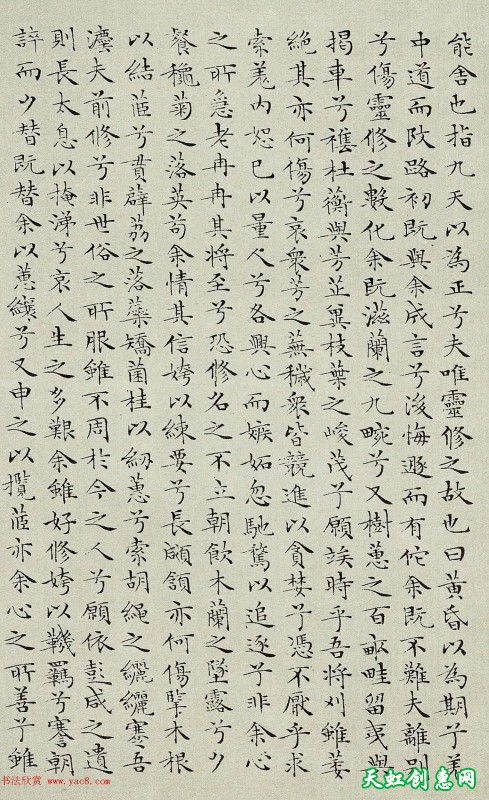 能舍也指九天以為正兮夫唯靈修之故也曰黃昏以為期兮羌
中道而改路初既與余成言兮後悔遯而有佗余既不難夫離別
兮傷靈修之數化余既滋蘭之九畹兮又樹蕙之百畝畦留夷與
揭車兮襍杜蘅與芳芷冀枝葉之峻茂兮願竢時乎吾將刈雖萎
絕其亦何傷兮哀眾芳之蕪穢眾皆競進以貪婪兮憑不厭乎求
索羌內恕己以量人兮各興心而嫉妬忽馳騖以追逐兮非余心
之所急老冉冉其將至兮恐修名之不立朝飲木蘭之墜露兮夕
餐穐菊之落英苟余情其信姱以練要兮長顑頷亦何傷擥木根
以結茝兮貫薜荔之落蘂矯菌桂以紉蕙兮索胡繩之纚纚謇吾
灋夫前修兮非世俗之所服雖不周於今之人兮願依彭咸之遺
則長太息以掩涕兮哀人生之多艱余雖好修姱以鞿羈兮謇朝
誶而夕替既替余以蕙纕兮又申之以攬茝亦余心之所善兮雖
书法欣赏 www.yac8.com
天虹创惠网